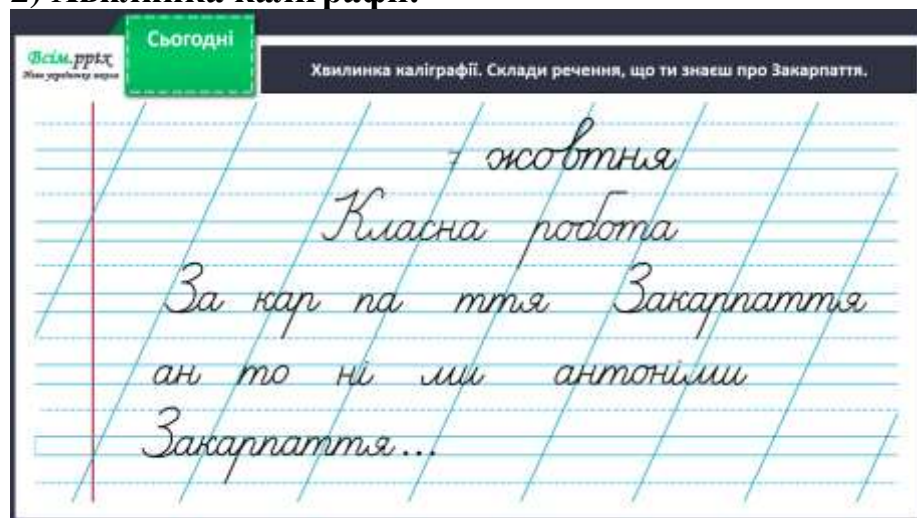 2) Хвилинка каліграфії.
Сьогодні
Всім.pptx
Нова українська школа
Хвилинка каліграфії. Склади речення, що ти знаєш про Закарпаття.
7 жовтня
Класна робота
За кар па ття Закарпаття
ан то ні ми антоніми
Закарпаття...